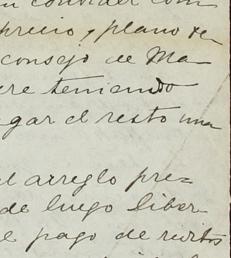 convider com
precio y plano de
consejo de Ma-
ere teniendo
agar el resto una
el arreglo pre-
de luego liber
e pago de reditos